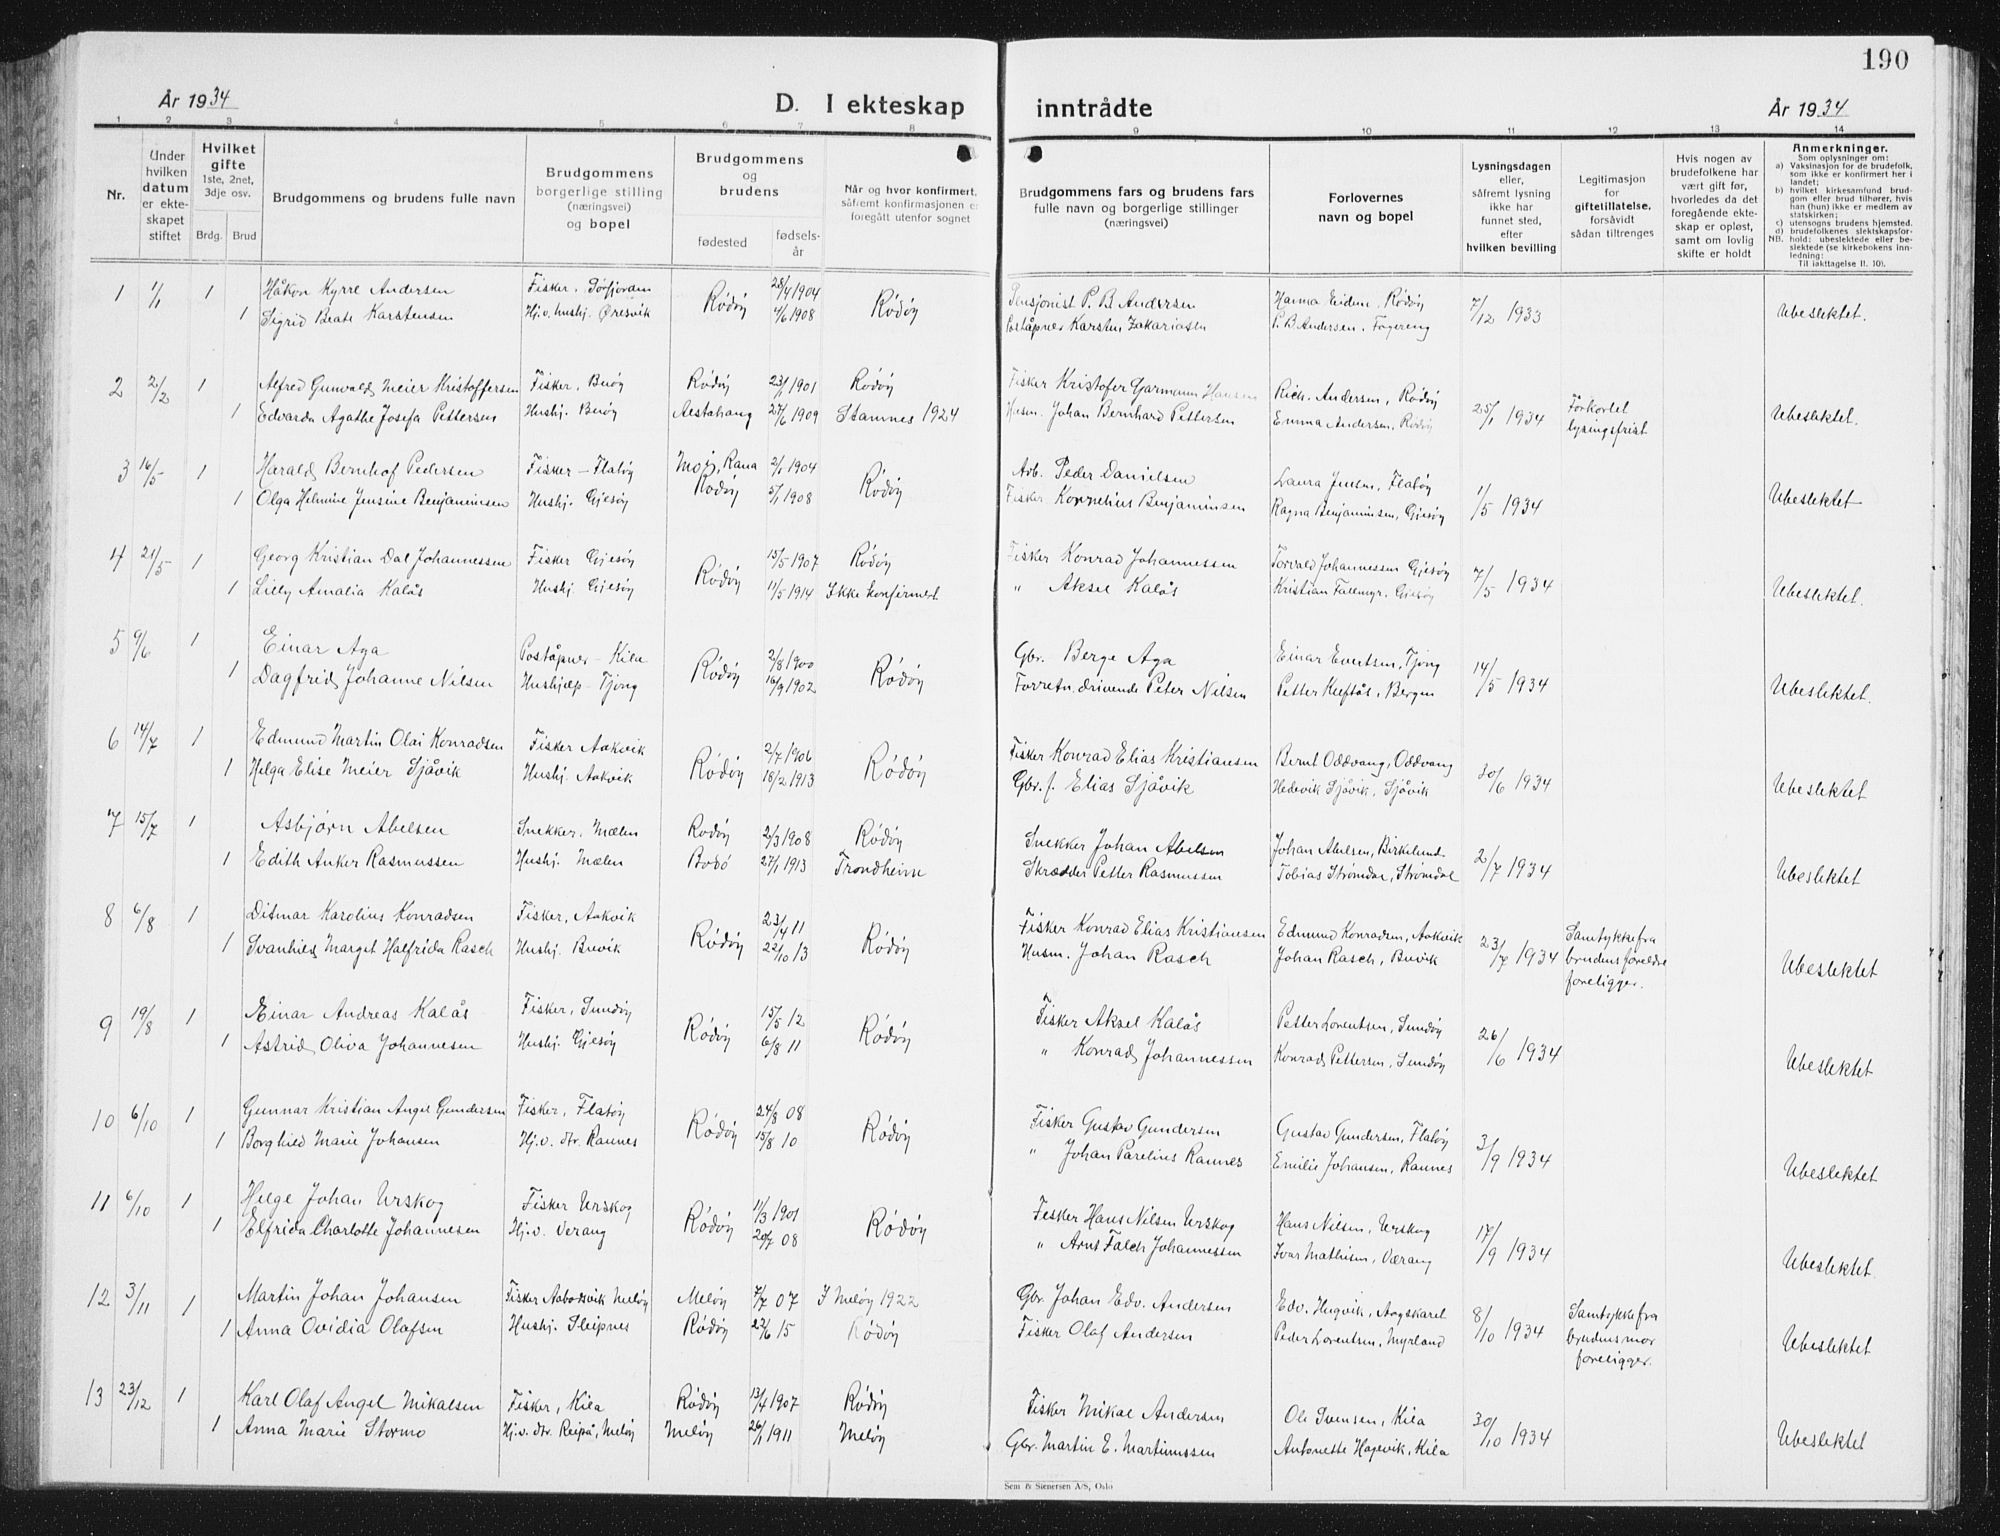 190
År 1934
D. I ekteskap inntrådte
År 1934
1 2 3 4 5 6 7 8 9 10 11 12 13 14
Nr.
Under hvilken datum er ekteskapet stiftet
Hvilket gifte 1ste, 2net, 3dje osv.
Brdg. Brud
Brudgommens og brudens fulle navn
Brudgommens borgerlige stilling (næringsvei) og bopel
Brudgommens og brudens
fødested
fødselsår
Når og hvor konfirmert, såfremt konfirmasjonen er foregått utenfor sognet
Brudgommens fars og brudens fars fulle navn og borgerlige stillinger (næringsvei)
Forlovernes navn og bopel
Lysningsdagen eller, såfremt lysning ikke har funnet sted, efter hvilken bevilling
Legitimasjon for giftetillatelse, forsåvidt sådan tiltrenges
Hvis nogen av brudefolkene har vært gift før, hvorledes da det foregående ekteskap er opløst, samt om lovlig skifte er holdt
Anmerkninger.
Som oplysninger om:
a) Vaksinasjon for de brudefolk, som ikke er konfirmert her i landet;
b) hvilket kirkesamfund brudgom eller brud tilhører, hvis han (hun) ikke er medlem av statskirken;
c) utensogns brudens hjemsted.
d) brudefolkenes slektskapsforhold: ubeslektede eller beslektede (se kirkebokens innledning:
NB. Til iakttagelse II. 10).
1 1/1 1 Håkon Kyrre Andersen Fisker, Sørfjorden Rødøy 28/4 1904 Rødøy Pensjonist P. B. Andersen Hanna Eidem, Rødøy 7/12 1933 Ubeslektet.
1 Sigrid Beate Karstensen Hj.v. hushj. Øresvik 4/6 1908 Poståpner Karsten Zakariasen P. B. Andersen, Fagereng
2 2/2 1 Alfred Gunvald Meier Kristoffersen Fisker, Buøy Rødøy 23/1 1901 Rødøy Fisker Kristofer Garmann Hansen Rich. Andersen, Rødøy 25/1 1934 Forkortet lysingsfrist Ubeslektet.
1 Edvarda Agathe Josefa Pettersen Hushj. Buøy Aestahaug 27/6 1909 Stamnes 1924 Husm. Johan Bernhard Pettersen Emma Andersen, Rødøy
3 16/5 1 Harald Bernhof Pedersen Fisker – Flatøy Moj, Rana 2/1 1904 Rødøy Arb. Peder Danielsen Laura Jensen, Flatøy 1/5 1934 Ubeslektet
1 Olga Helmine Jensine Benjaminsen Hushj. Gjesøy Rødøy 5/1 1908 Fisker Kornelius Benjaminsen Ragna Benjaminsen, Gjesøy
4 21/5 1 Georg Kristian Dal Johannessen Fisker Gjesøy Rødøy 15/5 1907 Rødøy Fisker Konrad Johannessen Torvald Johannessen Gjesøy 7/5 1934 Ubeslektet.
1 Lilly Amalia Kalås Hushj. Gjesøy 11/5 1914 Ikke konfirmert " Aksel Kalås Kristian Fallmyr, Gjesøy
5 9/6 1 Einar Aga Poståpner – Kila Rødøy 2/8 1900 Rødøy Gbr. Berge Aga Einar Evertsen, Tjong 14/5 1934 Ubeslektet.
1 Dagfrid Johanne Nilsen Hushjelp – Tjong 16/9 1902 Forretn.drivende Peter Nilsen Petter Kleftås, Bergen
6 14/7 1 Edmund Martin Olai Konradsen Fisker Aakvik Rødøy 2/7 1906 Rødøy Fisker Konrad Elias Kristiansen Bernt Oddvang, Oddvang 30/6 1934 Ubeslektet
1 Helga Elise Meier Sjåvik Hushj. Aakvik 18/2 1913 Gbr. f. Elias Sjåvik Hedevik Sjåvik, Sjåvik
7 15/7 1 Asbjørn Abelsen Snekker, Mælen Rødøy 2/3 1908 Rødøy Snekker Johan Abelsen Johan Abelsen, Birkelund 2/7 1934 Ubeslektet
1 Edith Anker Rasmussen Hushj. Mælen Bodø 27/1 1913 Trondheim Skrædder Petter Rasmussen Tobias Strømdal, Strømdal
8 6/8 1 Ditmar Karolius Konradsen Fisker, Aakvik Rødøy 23/4 11 Rødøy Fisker Konrad Elias Kristiansen Edmund Konradsen, Aakvik 23/7 1934 Samtykke fra brudens foreldre foreligger. Ubeslektet
1 Svanhild Marget Halfrida Rasch Hushj. Buvik 22/10 13 Husm. Johan Rasch Johan Rasch, Buvik
9 19/8 1 Einar Andreas Kalås Fisker, Sundøy Rødøy 15/5 12 Rødøy Fisker Aksel Kalås Petter Lorentsen, Sundøy 26/6 1934 Ubeslektet
1 Astrid Oliva Johannesen Hushj. Gjesøy 6/8 11 " Konrad Johannessen Konrad Pettersen, Sundøy
10 6/10 1 Gunnar Kristian Angel Gundersen Fisker, Flatøy Rødøy 24/8 08 Rødøy Fisker Gustav Gundersen Gustav Gundersen, Flatøy 3/9 1934 Ubeslektet
1 Borghild Marie Johansen Hj.v. dtr. Rannes 15/8 10 " Johan Parelius Rannes Emilie Johansen, Rannes
11 6/10 1 Helge Johan Urskog Fisker Urskog Rødøy 11/3 1901 Rødøy Fisker Hans Nilsen Urskog Hans Nilsen, Urskog 17/9 1934 Ubeslektet.
1 Elfrida Charlotte Johannesen Hj.v. Værang 20/7 08 " Arnt Falch Johannessen Ivar Mathisen, Værang
12 3/11 1 Martin Johan Johansen Fisker Aabodsvik Meløy Meløy 7/7 07 I Meløy 1922 Gbr. Johan Edv. Andersen Edv. Hugvik, Aagskaret 8/10 1934 Samtykke fra brudens mor foreligger. Ubeslektet
1 Anna Ovidia Olafsen Hushj. Sleipnes Rødøy 27/6 15 Rødøy Fisker Olaf Andersen Peder Lorentsen, Myrland
13 23/12 1 Karl Olaf Angel Mikalsen Fisker, Kila Rødøy 13/4 1907 Rødøy Fisker Mikal Andersen Ole Svensen, Kila 30/10 1934 Ubeslektet
1 Anna Marie Stormo Hj.v. dtr. Reipå, Meløy Meløy 26/1 1911 Meløy Gbr. Martin E. Martinussen Antonette Hagevik, Kila
Sem & Stenersen A/S, Oslo